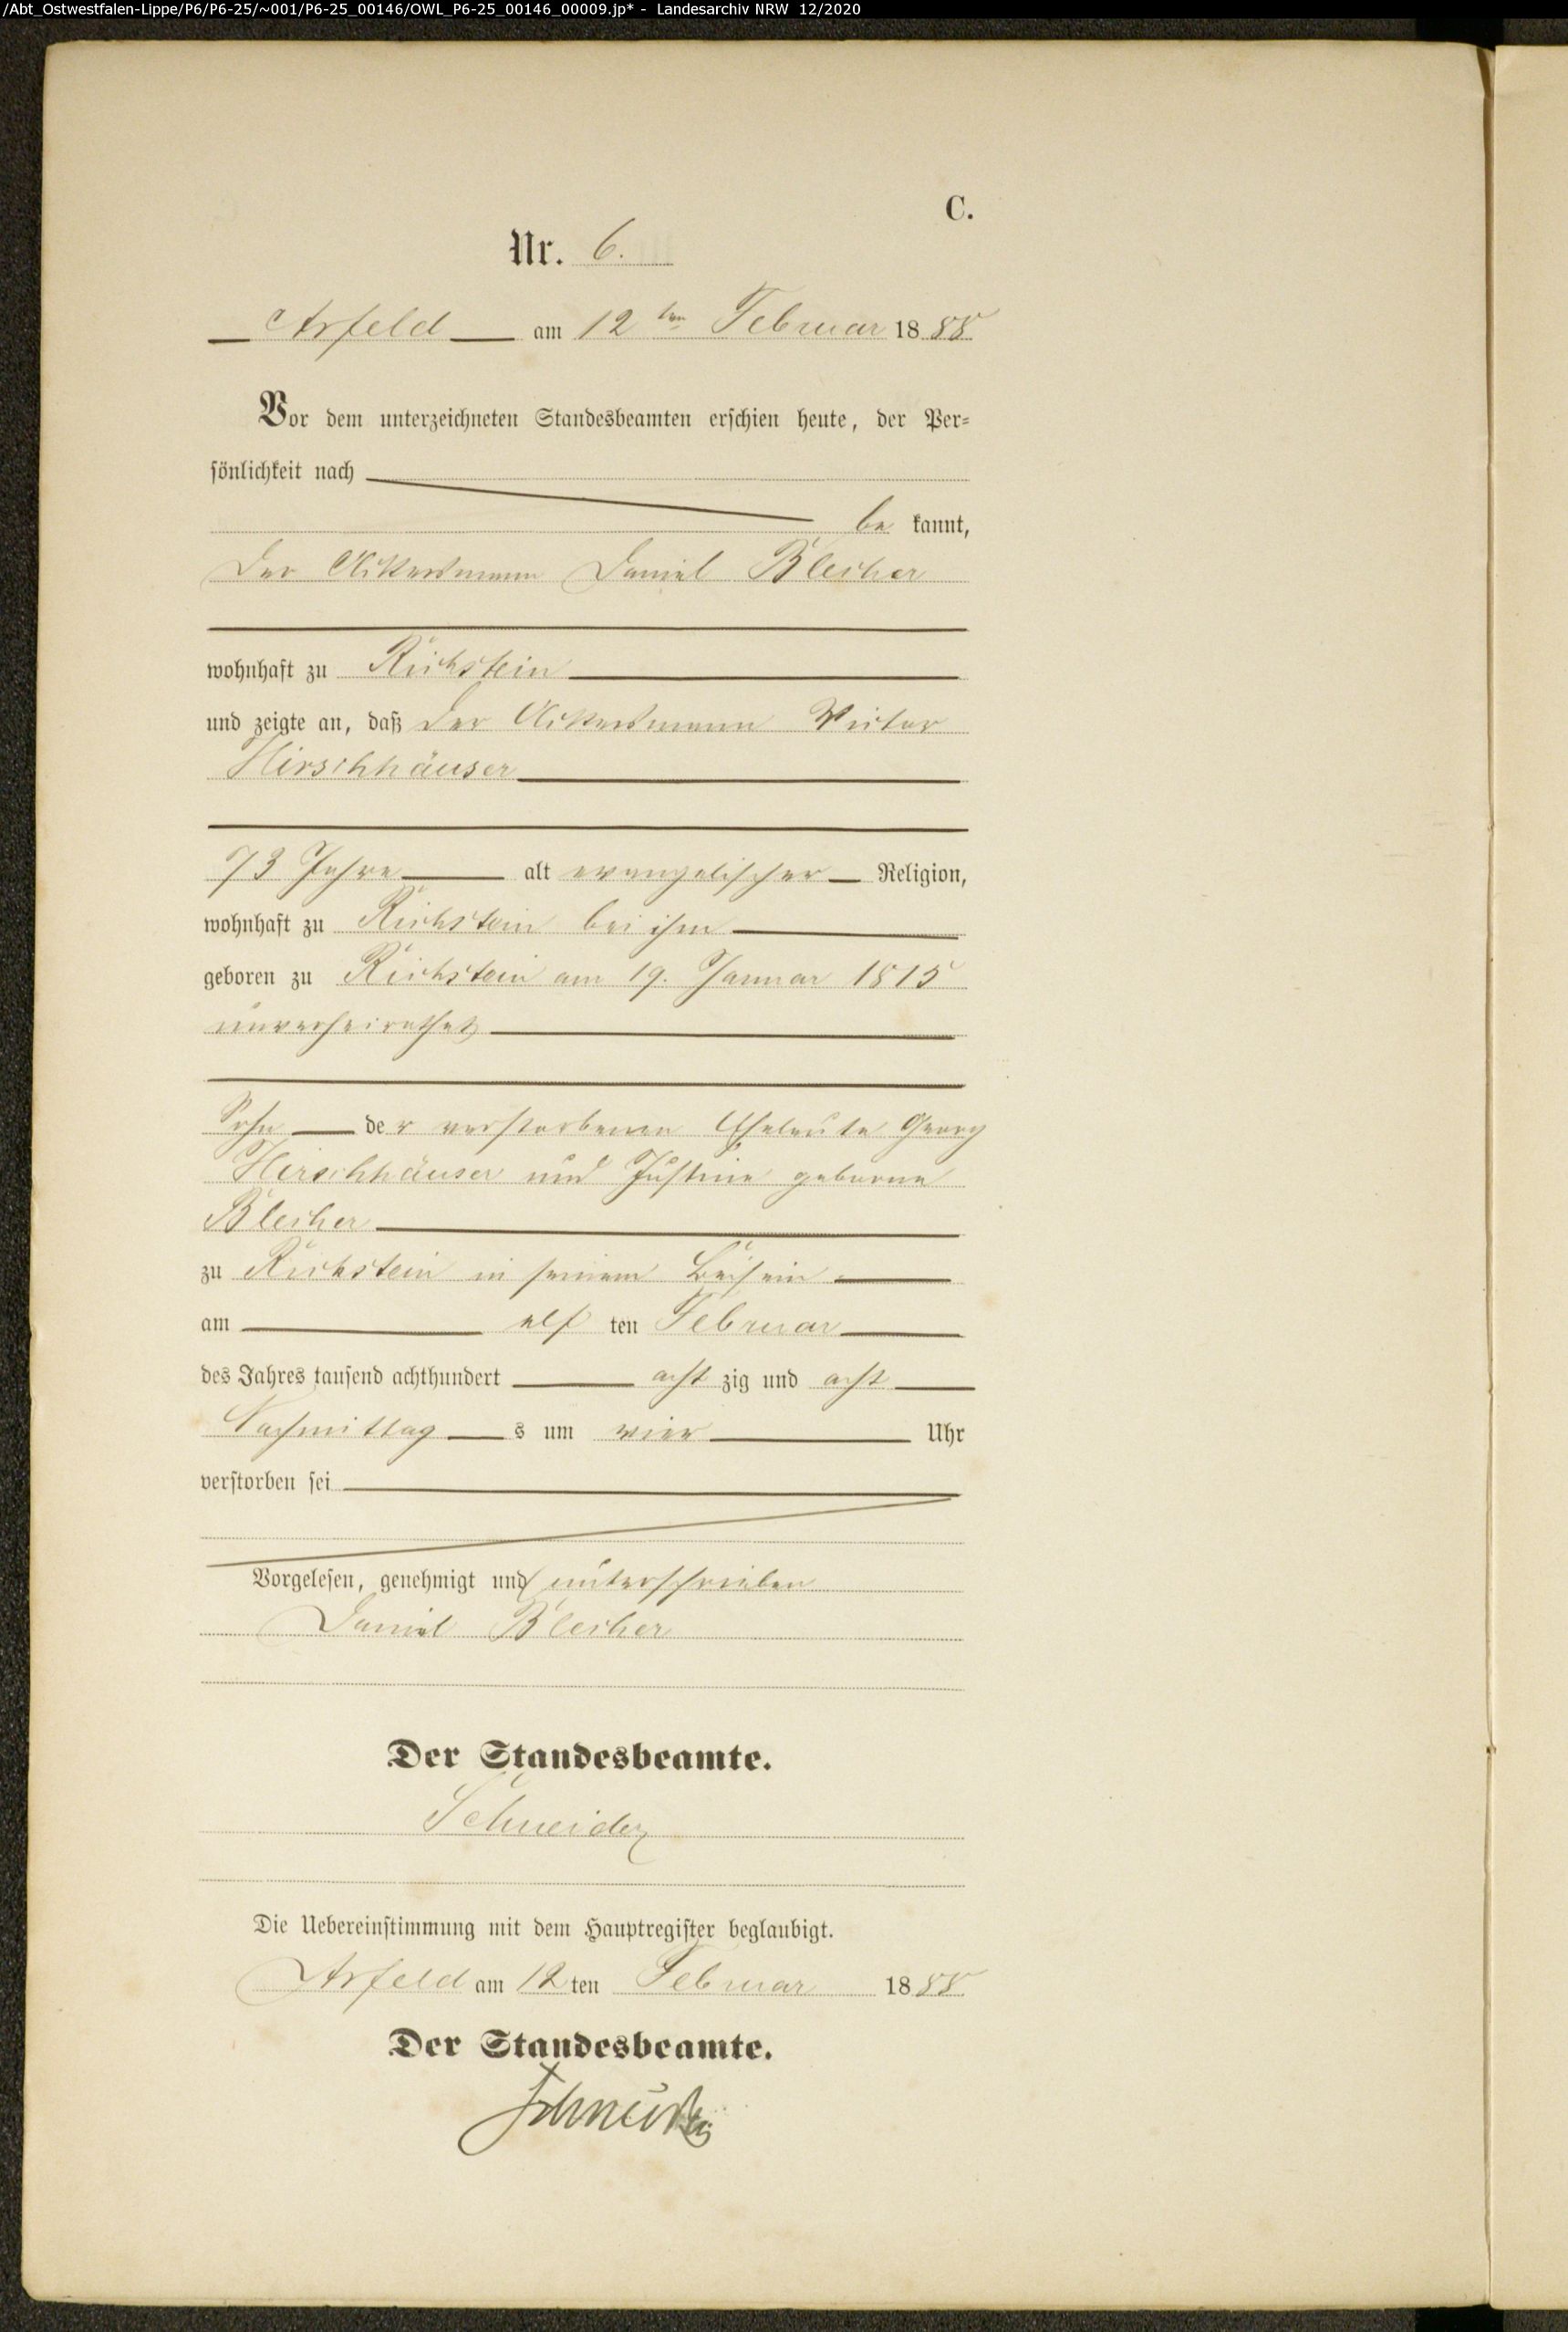 /Abt_Ostwestfalen-Lippe/P6/P6-25/~001/P6-25_00146/OWL_P6-25_00146_00009.jp* - Landesarchiv NRW 12/2020
C.
Nr. 6.
Arfeld am 12ten Februar 1888
Vor dem unterzeichneten Standesbeamten erschien heute, der Per-
sönlichkeit nach
be kannt,
Der Ackersmann Daniel Bleicher
wohnhaft zu Richstein
und zeigte an, daß der Ackersmann Victor
Hirschhäuser
73 Jahre alt evangelischer Religion,
wohnhaft zu Richstein bei ihm
geboren zu Richstein am 19. Januar 1815
unverheirathet
Sohn der verstorbenen Eheleute Georg
Hirschhäuser und Justine geborne
Bleicher
zu Richstein in seinem Beisein
am elf ten Februar
des Jahres tausend achthundert acht zig und acht
Nachmittag s um vier Uhr
verstorben sei
Vorgelesen, genehmigt und unterschrieben
Daniel Bleicher
Der Standesbeamte.
Schneider
Die Uebereinstimmung mit dem Hauptregister beglaubigt.
Arfeld am 12 ten Februar 1888.
Der Standesbeamte.
Schneider